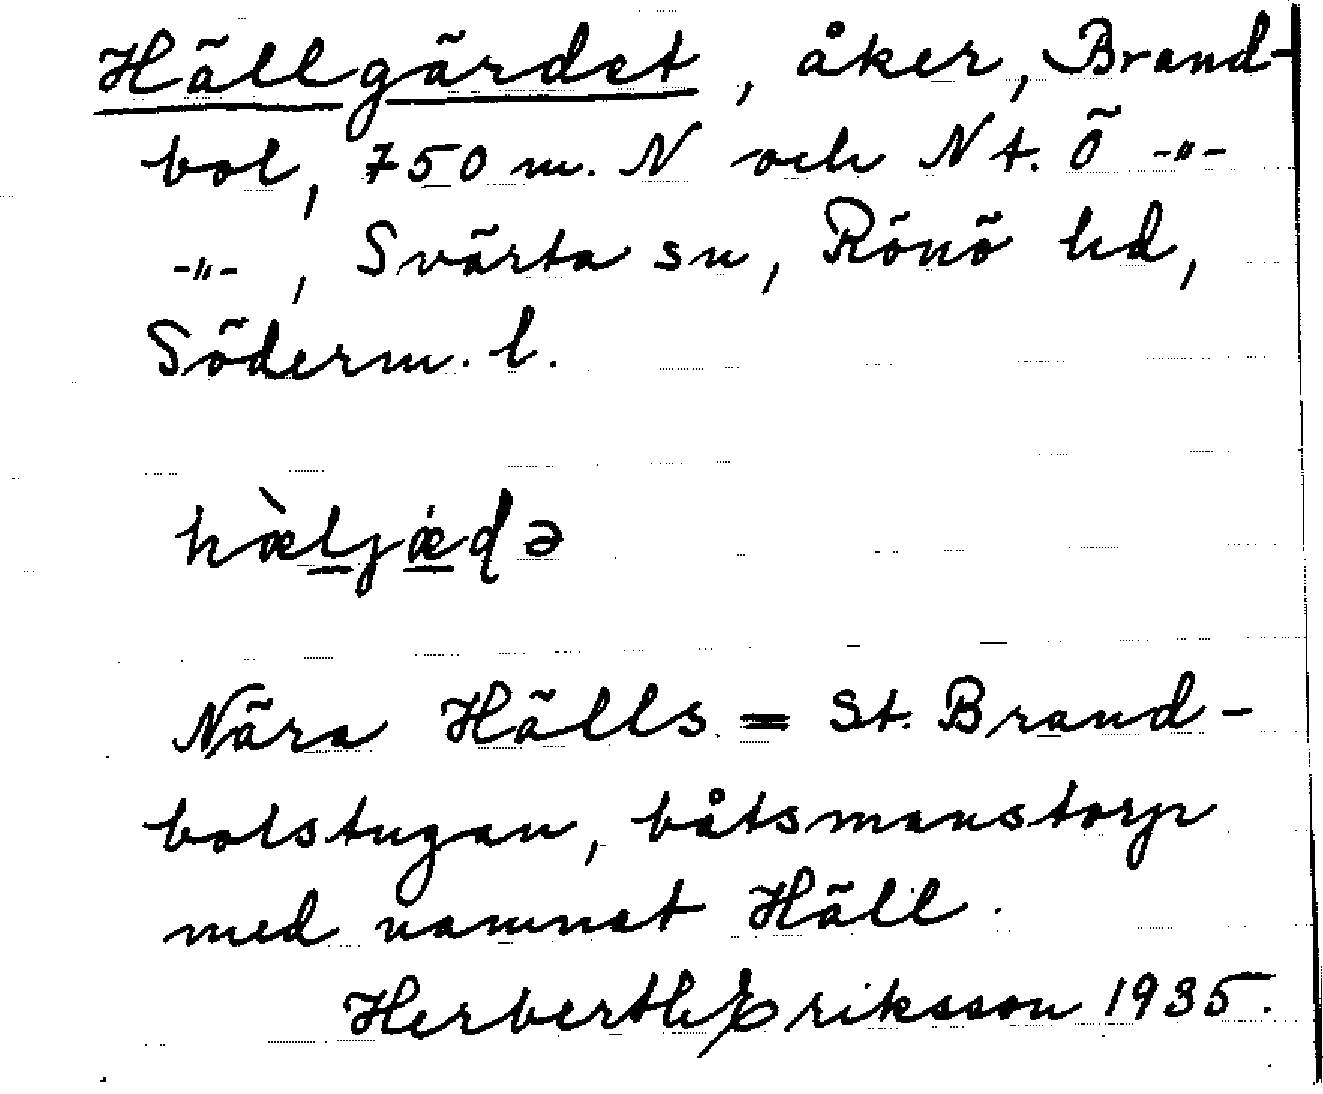 Hällgärdet, åker, Brand-
bol, 750 m. N och N t. Ö -"-
-"-, Svärta sn, Rönö hd,
Söderm. l.
hæ̀ḻjæ̱̇ɖə
Nära Hälls = St. Brand-
bolstugan, båtsmanstorp
med namnet Häll.
Herberth Eriksson 1935.